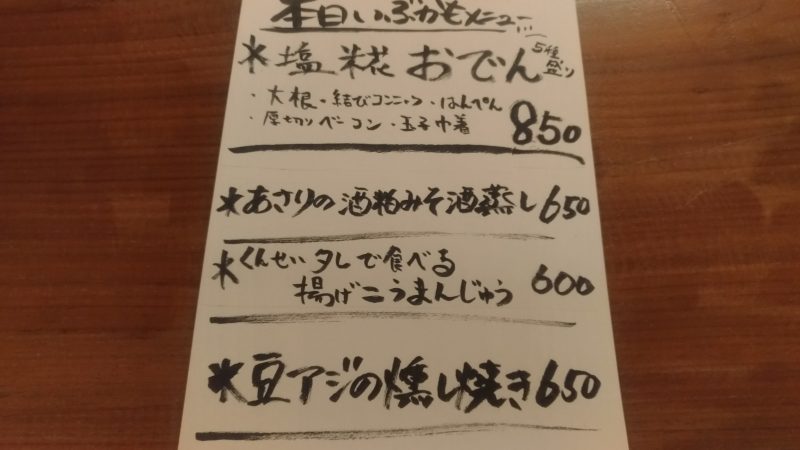 本日いぶかもメニュー
*塩糀おでん 5種盛り
・大根・結びコンニャク・はんぺん
・厚切りベーコン・玉子巾着 850
*あさりの酒粕みそ酒蒸し 650
*くんせい夕しで食べる
揚げこうまんじゅう 600
*豆アジの燻し焼き 650